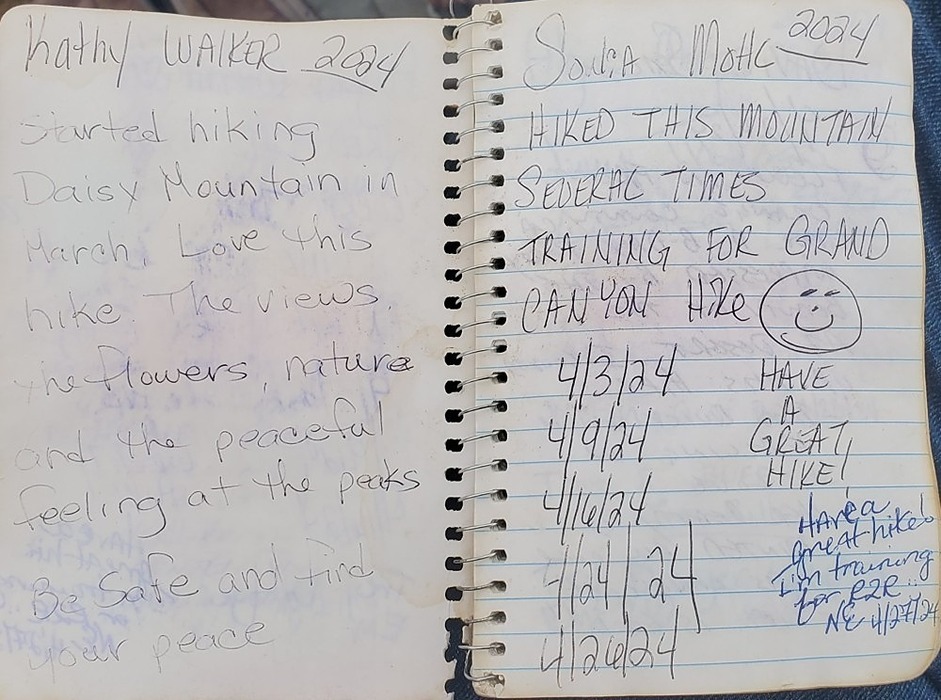 Kathy WALKER 2024
Started hiking
Daisy Mountain in
March. Love this
hike. The views,
the flowers, nature
and the peaceful
feeling at the peaks
Be Safe and find
your peace
SONIA MOHC 2024
HIKED THIS MOUNTAIN
SEVERAL TIMES
TRAINING FOR GRAND
CANYON Hike
4/3/24
4/9/24
4/16/24
4/24/24
4/26/24
HAVE
A
GREAT
HIKE!
Have a
great hike!
I'm training
for R2R..
NE 4/27/24